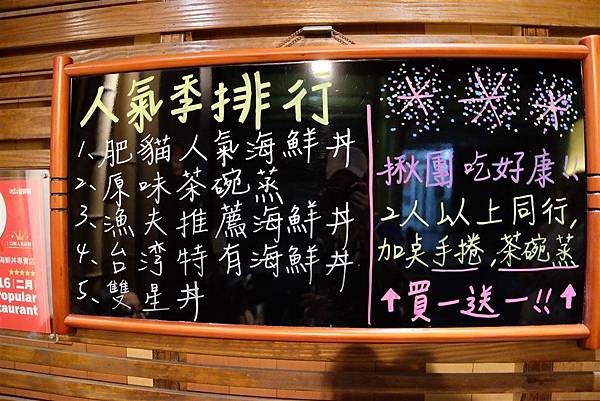 人氣季排行
1、肥貓人氣海鮮丼
2、原味茶碗蒸
3、漁夫推薦海鮮丼
4、台湾特有海鮮丼
5、雙星丼
揪團吃好康!!
2人以上同行,
加点手捲,茶碗蒸
↑買一送一!!↑
海鮮丼專賣店
★★★★★
16 二月
Popular
staurant